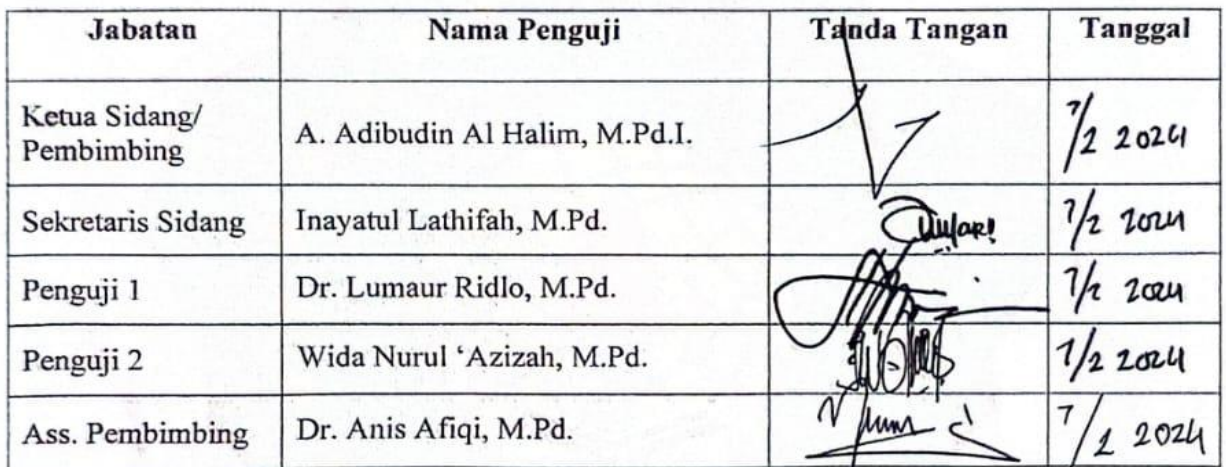 Jabatan Nama Penguji Tanda Tangan Tanggal
Ketua Sidang/
Pembimbing A. Adibudin Al Halim, M.Pd.I. 7/2 2024
Sekretaris Sidang Inayatul Lathifah, M.Pd. 7/2 2024
Penguji 1 Dr. Lumaur Ridlo, M.Pd. 7/2 2024
Penguji 2 Wida Nurul ‘Azizah, M.Pd. 7/2 2024
Ass. Pembimbing Dr. Anis Afiqi, M.Pd. 7/2 2024